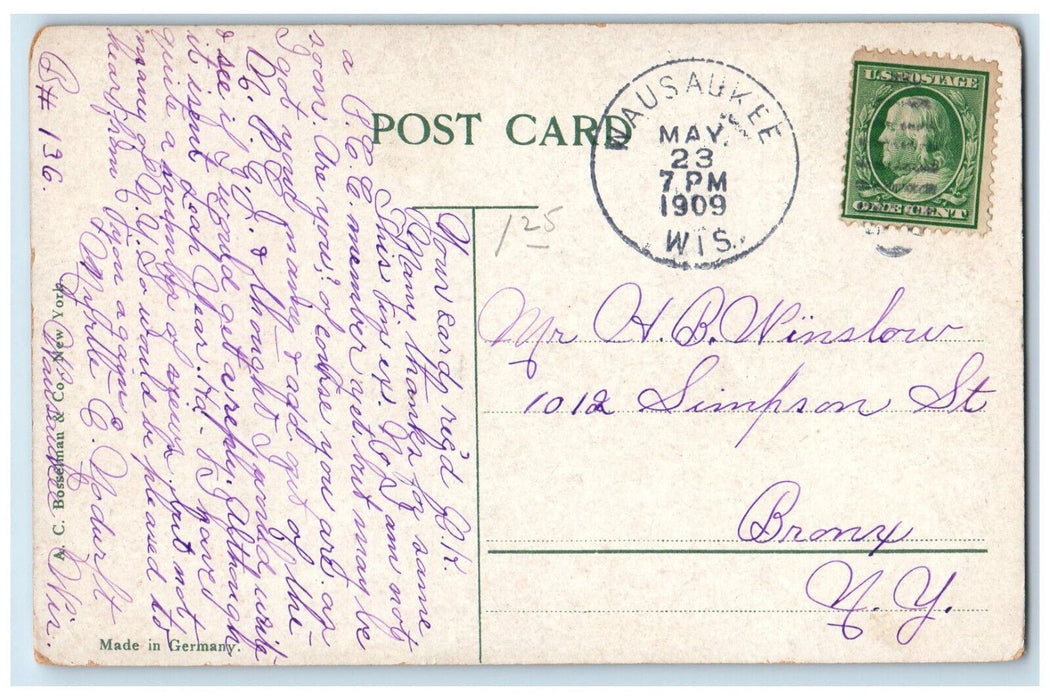 POST CARD
WAUSAUKEE
MAY
23
7 PM
1909
WIS.
U.S. POSTAGE
ONE CENT
125
Mr H. B. Winslow
1012 Simpson St
Bronx
N. Y.
Your card rec'd O.K.
Many thanks for same
This fine ex. No I am not
a P.C.C. member yet but may be
soon. Are you? of course you are as
I got your name & add out of the
& thought I would write
& see if I could get a reply. Although
it isent doch year. Ha- I have
quite a number of views but not
many of N.Y. So would be pleased to
hear from you again
Myrtle C.
Wausaukee Wis.
# 136.
A. C. Bosselman & Co., New York.
Made in Germany.